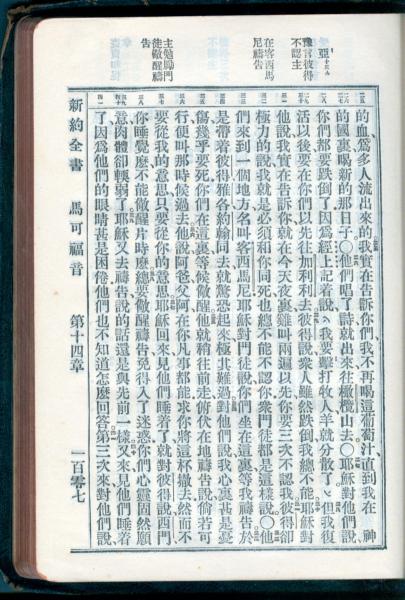 亞十三〇七
豫言彼得
不認主
在客西馬
尼禱告
主勉勵門
徒儆醒禱
告
的血、爲多人流出來的我實在告訴你們、我不再喝這葡萄汁直到我在 神
的國裏喝新的那日子〇他們唱了詩就出來往橄欖山去〇耶穌對他們說、
你們都要跌倒了因爲經上記着說、我要擊打牧人羊就分散了、但我復
活以後要在你們以先往加利利去彼得說衆人雖然跌倒我總不能耶穌對
他說我實在告訴你就在今天夜裏雞叫兩遍以先你要三次不認我彼得卻
極力的說我就是必須和你同死也總不能不認你衆門徒都是這樣說〇他
們來到一個地方名叫客西馬尼耶穌對門徒說你們坐在這裏等我禱告於
是帶着彼得雅各約翰同去就驚恐起來極其難過對他們說我心裏甚是憂
傷幾乎要死你們在這裏等候儆醒他就稍往前走俯伏在地禱告說倘若可
行便叫那時候過去他說阿爸父阿在你凡事都能求你將這杯撤去然而不
要從我的意思只要從你的意思耶穌回來見他們睡着了就對彼得說西門
你睡覺麼不能儆醒片時麼總要儆醒禱告免得入了迷惑你們心靈固然願
意肉體卻輭弱了耶穌又去禱告說的話還是與先前一樣又來見他們睡着
了因爲他們的眼睛甚是困倦他們也不知道怎麼回答第三次來對他們說
新約全書 馬可福音 第十四章 一百零七